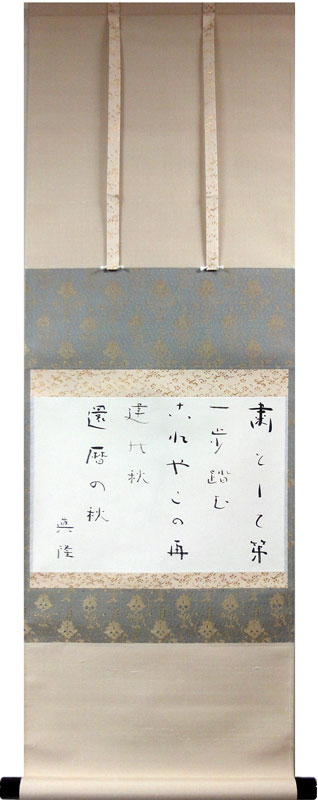 粛として第
一歩踏む
これやこの再
建の秋
還暦の秋
真隆